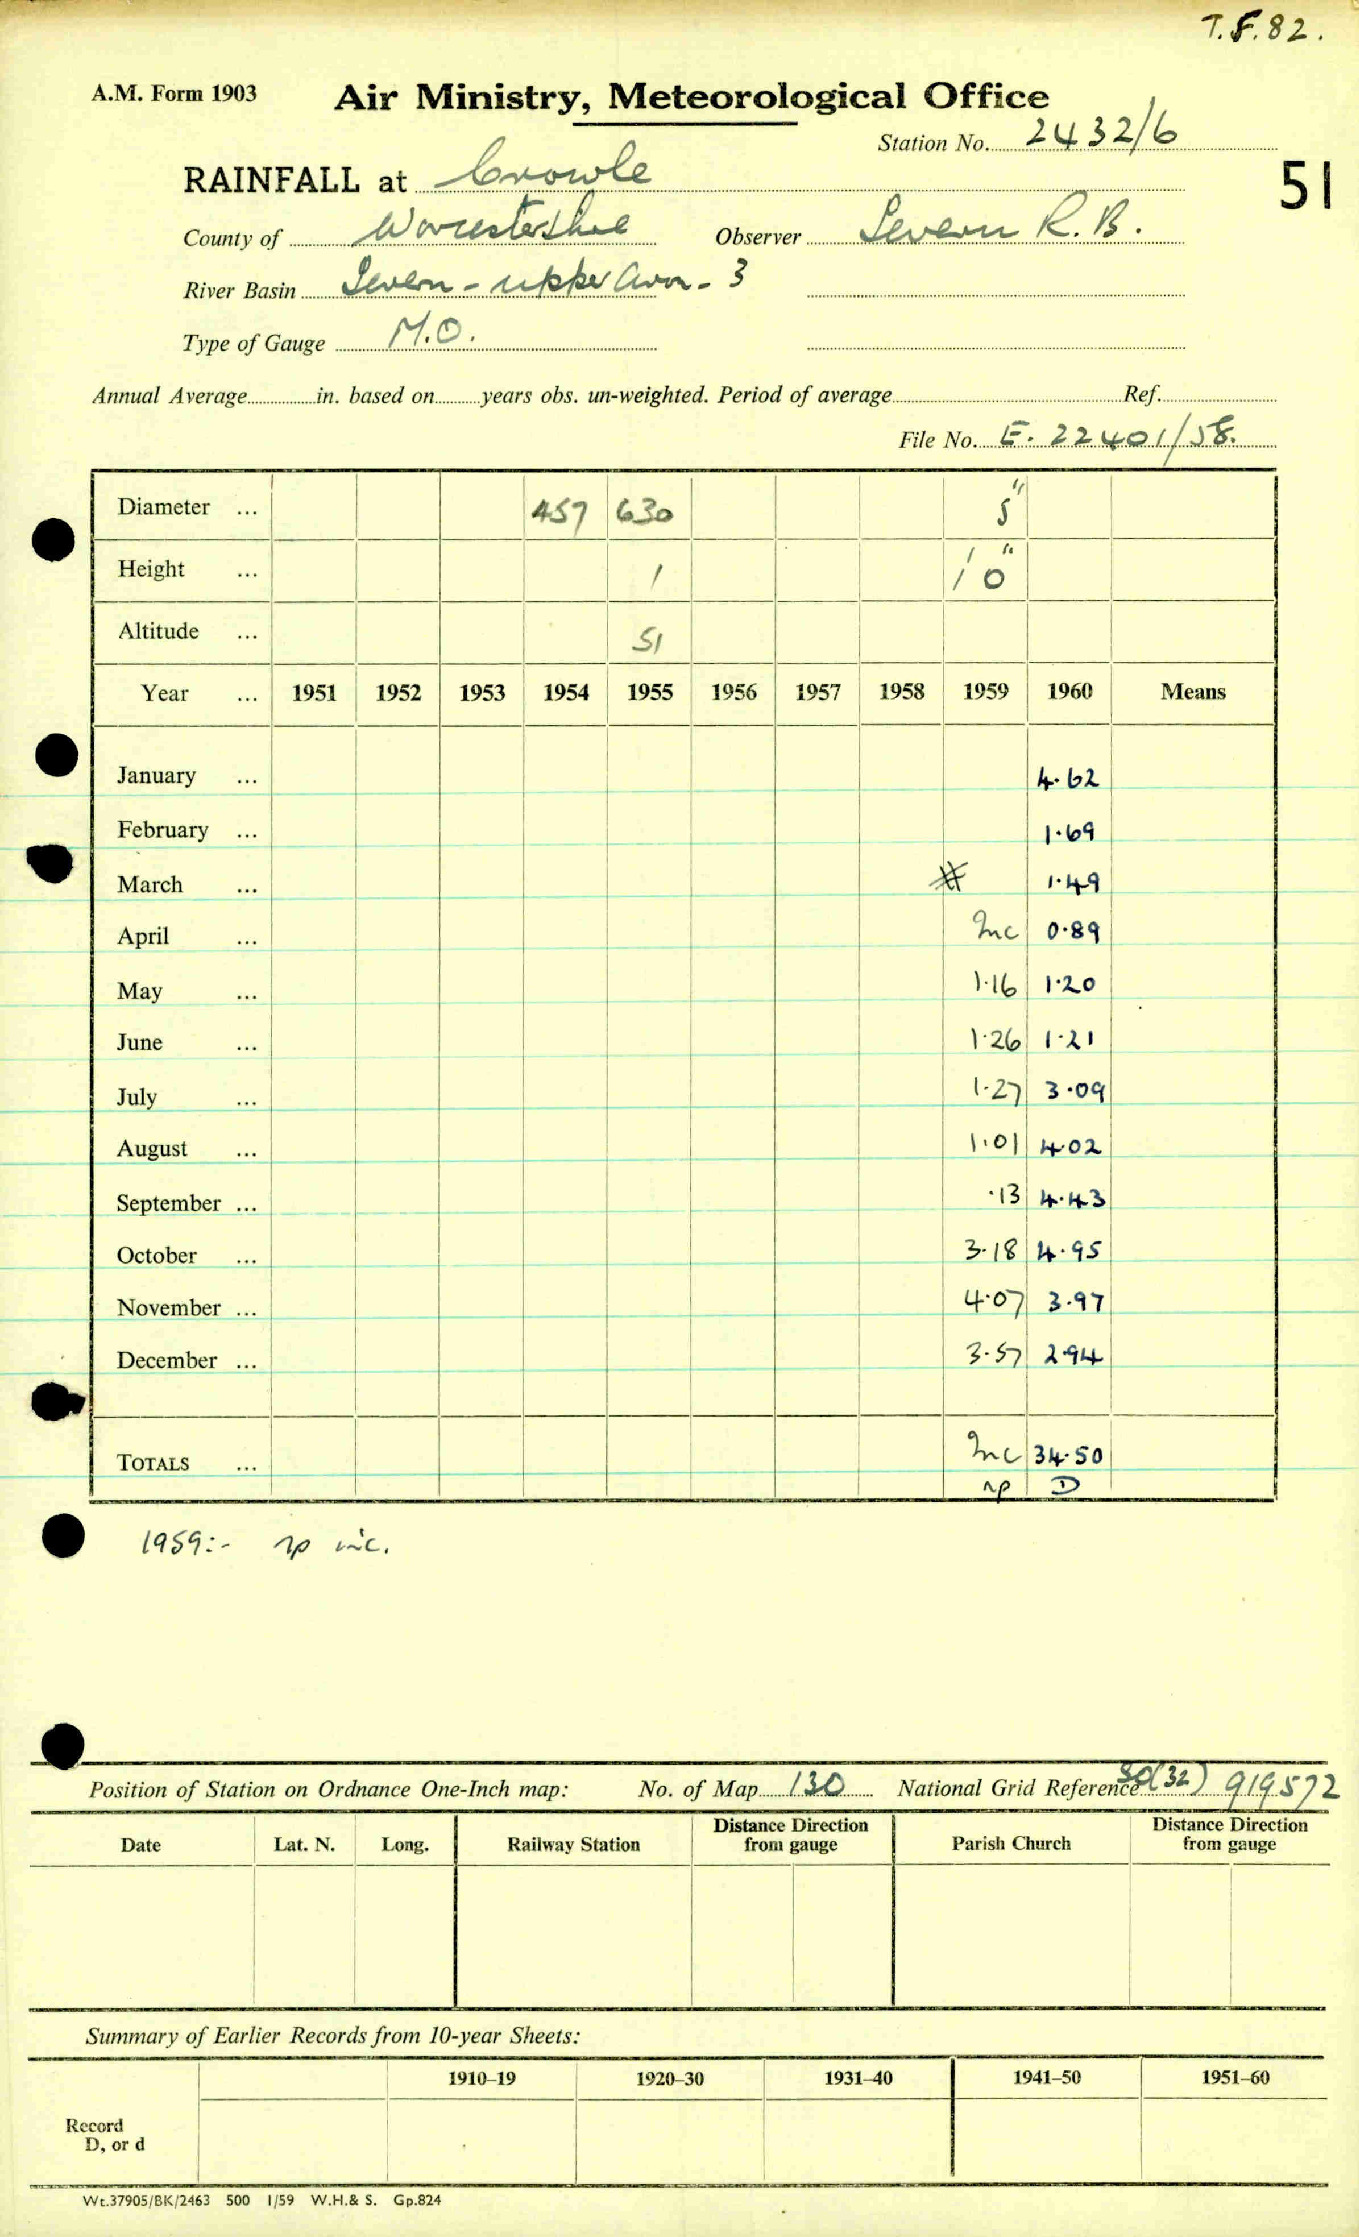 T.F.82.
A.M. Form 1903 Air Ministry, Meteorological Office
Station No. 2432/6
RAINFALL at Crowle
51
County of Worcestershire Observer Severn R.B.
River Basin Severn - upper Avon - 3
Type of Gauge M.O.
Annual Average in. based on years obs. un-weighted. Period of average Ref.
File No. E. 22401/58.
Diameter ... 457 630 5"
Height ... 1 1' 0"
Altitude ... 51
Year ... 1951 1952 1953 1954 1955 1956 1957 1958 1959 1960 Means
January ... 4.62
February ... 1.69
March ... 1.49
April ... Inc 0.89
May ... 1.16 1.20
June ... 1.26 1.21
July ... 1.27 3.09
August ... 1.01 4.02
September ... .13 4.43
October ... 3.18 4.95
November ... 4.07 3.97
December ... 3.57 2.94
TOTALS ... Inc 34.50
np D
1959:- np inc.
Position of Station on Ordnance One-Inch map: No. of Map 130 National Grid Reference SO(32) 919572
Date Lat. N. Long. Railway Station Distance Direction from gauge Parish Church Distance Direction from gauge
Summary of Earlier Records from 10-year Sheets:
1910–19 1920–30 1931–40 1941–50 1951–60
Record
D, or d
Wt.37905/BK/2463 500 1/59 W.H.& S. Gp.824